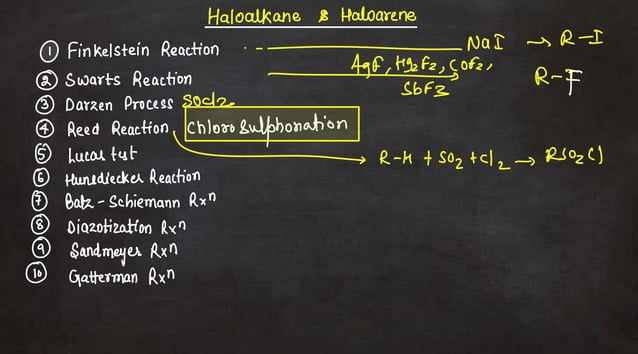 Haloalkane & Haloarene
① Finkelstein Reaction NaI → R-I
② Swarts Reaction AgF, Hg2F2, COF2, SbF3 R-F
③ Darzen Process SOCl2
④ Reed Reaction, Chlorosulphonation
R-H + SO2 + Cl2 → RSO2Cl
⑤ Lucas test
⑥ Hunsdiecker Reaction
⑦ Balz-Schiemann Rxn
⑧ Diazotization Rxn
⑨ Sandmeyer Rxn
⑩ Gatterman Rxn